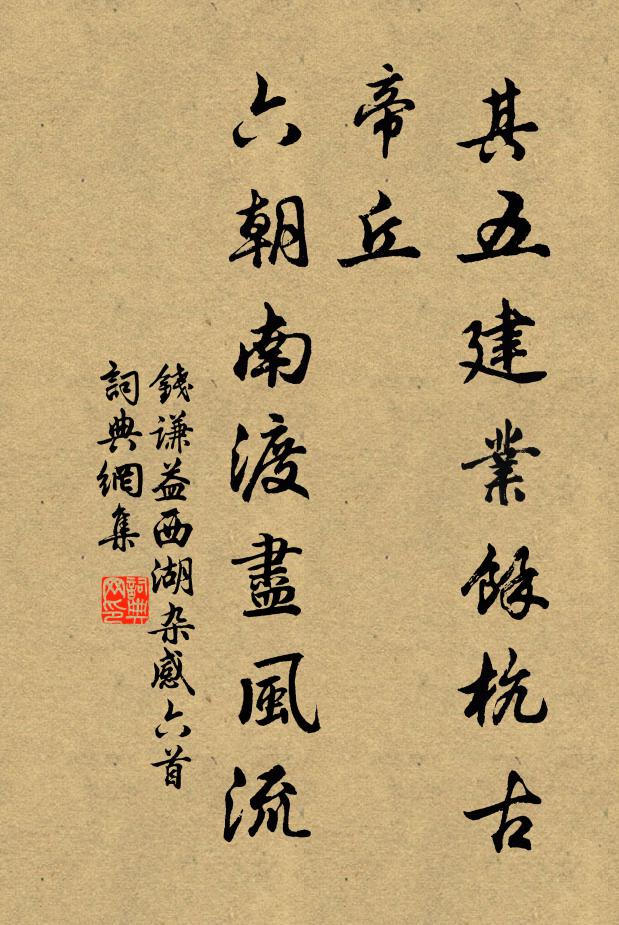 其五建業餘杭古
帝丘
六朝南渡盡風流
錢谦益西湖杂感六首
詞典網集
詞典网印